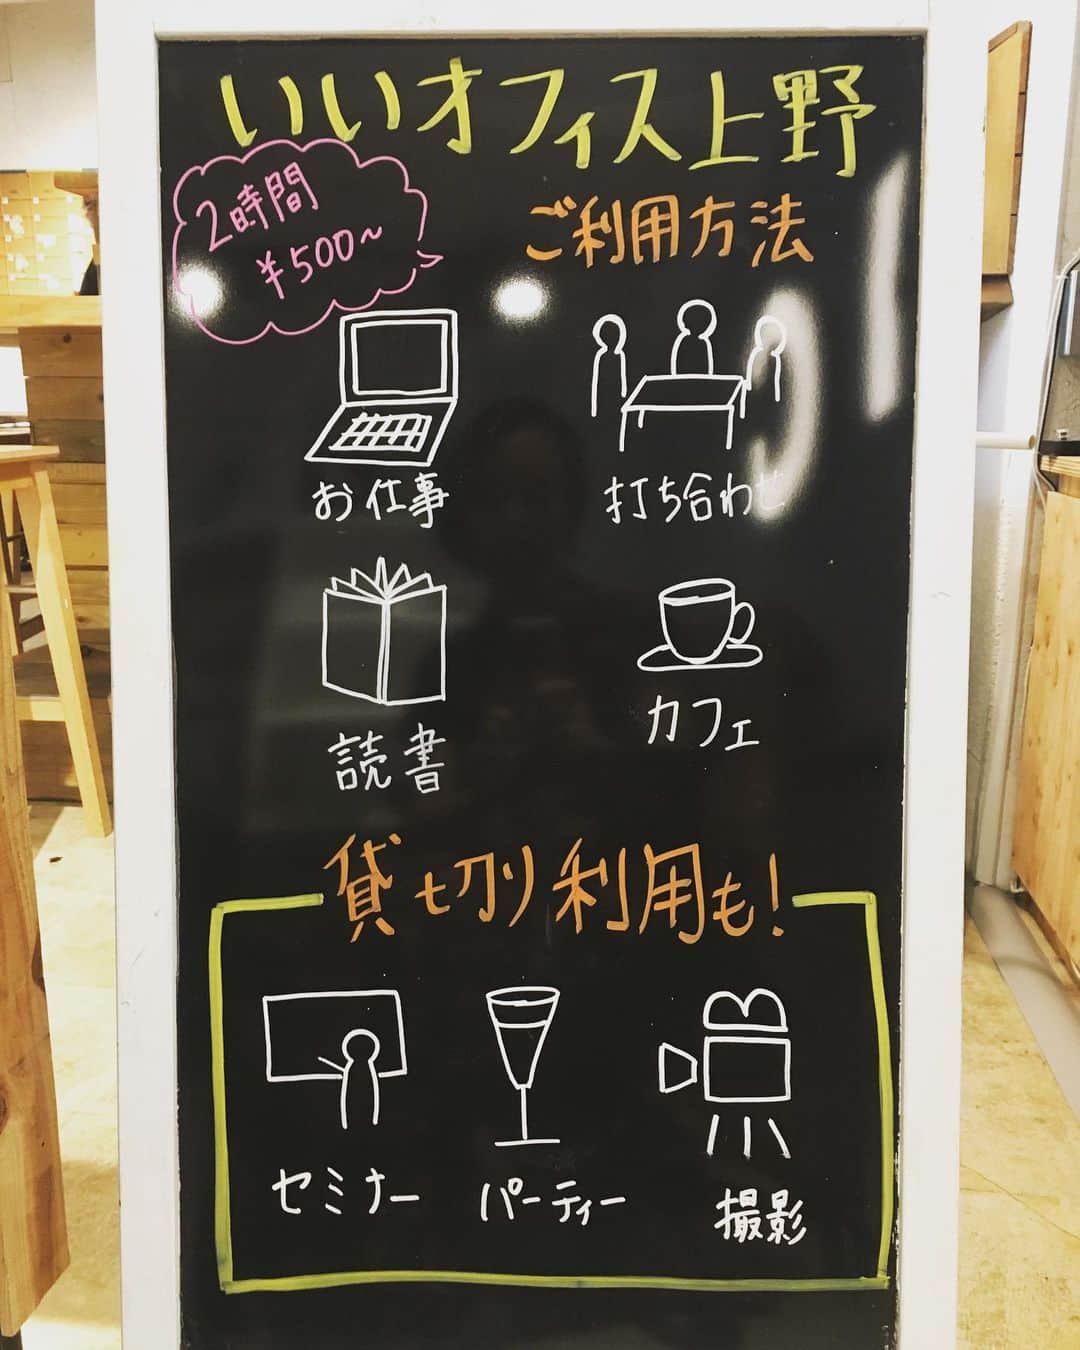 いいオフィス上野
2時間
¥500~
ご利用方法
お仕事
打ち合わせ
読書
カフェ
貸し切り利用も!
セミナー
パーティー
撮影